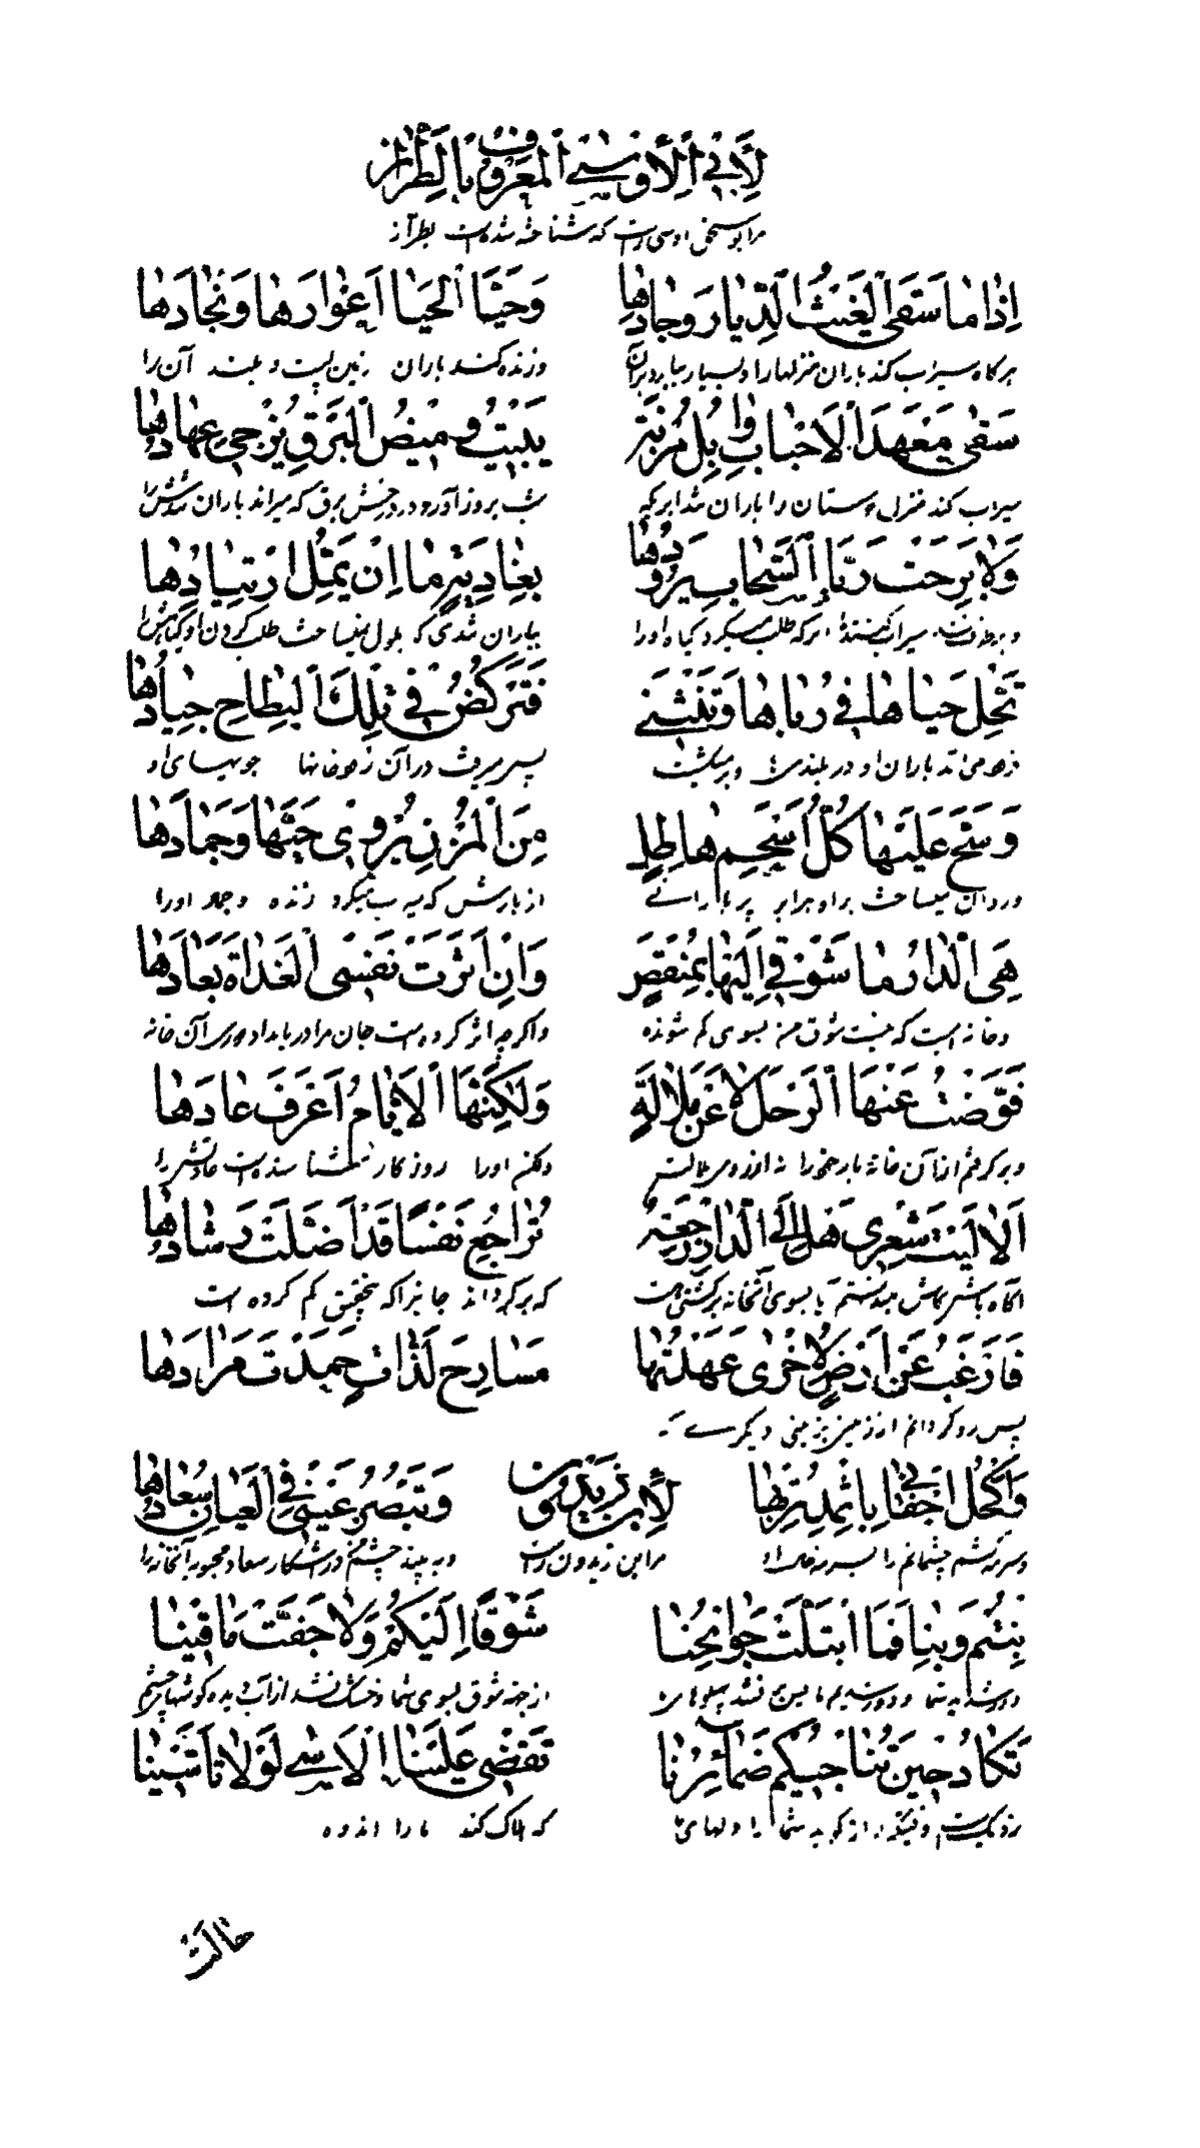 لِأَبِي الْأَوْسِيِّ الْمَعْرُوفِ بِالطِّرَازِ
مرابو اوسی راست که شناخته شده است بطراز
إِذَا مَا سَقَى الْغَيْثُ الدِّيَارَ وَجَادَهَا وَحَيَّا الْحَيَا أَغْوَارَهَا وَنِجَادَهَا
هرگاه سیراب کند باران منزلها را و بسیار ببارد بر آن وزنده کند باران زمین پست و بلند آن را
سَقَى مَعْهَدَ الْأَحْبَابِ وَابِلُ مُزْنَةٍ يَبِيتُ وَمِيضُ الْبَرْقِ يُزْجِي عِهَادَهَا
سیراب کند منزل دوستان را باران تند ابر که شب بروز آورد درخشش برق که میراند باران
وَلَا بَرِحَتْ رَيَّا السَّحَابِ يَرُودُهَا بِغَادِيَةٍ مَا إِنْ يَمَلُّ ارْتِيَادَهَا
بباران تندی که ملول طلب کردن او
تَحُلُّ حَيَاهَا فِي رُبَاهَا وَتَنْثَنِي فَتَرْكُضُ فِي تِلْكَ الْبِطَاحِ جِيَادُهَا
باران او در بلندی پس میرفت در آن رودخانها جویهای او
وَسَحَّ عَلَيْهَا كُلُّ أَسْحَمَ هَاطِلٍ مِنَ الْمُزْنِ يُرْوِي حَيَّهَا وَجَمَادَهَا
از بارش که زنده و جماد او را
هِيَ الدَّارُ مَا شَوْقِي إِلَيْهَا بِمُنْقَصٍ وَإِنْ أَثَّرَتْ نَفْسِي الْغَدَاةَ بَعَادَهَا
و خانه است که نیست شوق من بسوی کم شونده و اگرچه اثر کرده است جان مرا در بامداد دوری آن خانه
فَقَوَّضْتُ عَنْهَا الرَّحْلَ لَا عَنْ مَلَالَةٍ وَلَكِنَّهَا الْأَيَّامُ أَعْرَفُ عَادَهَا
و برگرفتم از آن خانه بار خود را نه از روی ملالت ولکن او را روزگار عادتش را
أَلَا لَيْتَ شِعْرِي هَلْ إِلَى الدَّارِ رَجْعَةٌ تُرَاجِعُ نَفْسًا قَدْ أَضَلَّتْ رَشَادَهَا
آگاه باش کاش میدانستم یا بسوی آنخانه برگشتن هست که برگرداند جانیرا که بتحقیق گم کرده است
فَأَرْغَبُ عَنْ أَرْضٍ لِأُخْرَى عَهِدْتُهَا مَسَارِحَ لَذَّاتٍ حَمِدْتُ مَرَادَهَا
پس روگردانم از زمین بزمینی دیگر که
وَأَكْحُلُ أَجْفَانِي بِإِثْمِدِ تُرْبِهَا وَتُبْصِرُ عَيْنِي فِي الْعِيَانِ سُعَادَهَا
لِأَبِنْ زَيْدُونَ
و سرمه کشم چشمانم را بسرمه خاک او مر ابن زیدون راست و ببیند چشم در آشکار سعاد محبوبه آنخانه را
بِنْتُمْ وَبِنَّا فَمَا ابْتَلَّتْ جَوَانِحُنَا شَوْقًا إِلَيْكُمْ وَلَا جَفَّتْ مَآقِينَا
دور شدید شما و دور شدیم ما پس تر نشد پهلوها از جهة شوق بسوی شما و خشک نشد از آب دیده گوشهای چشم
تَكَادُ حِينَ تُنَاجِيكُمْ ضَمَائِرُنَا تَقْضِي عَلَيْنَا الْأَسَى لَوْلَا تَأَسِّينَا
نزدیکست وقتیکه راز گوید شما را دلهای ما که هلاک کند ما را اندوه
حالت